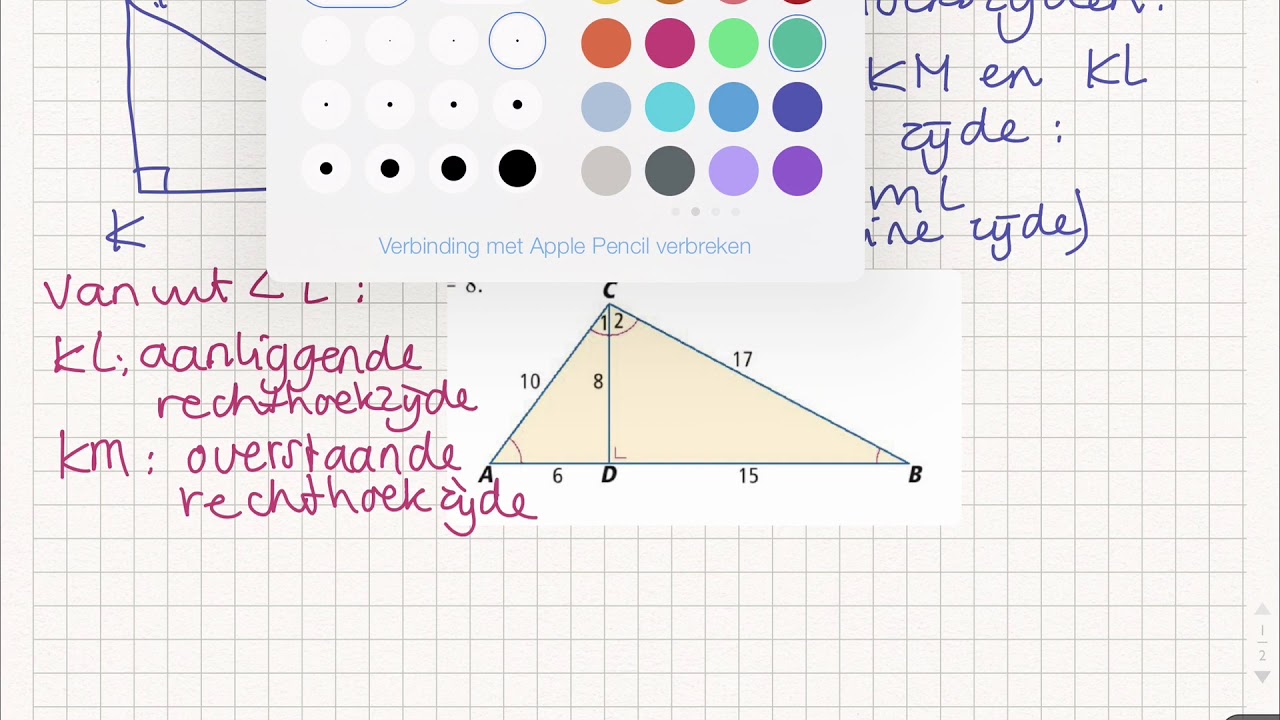 KM en KL
zijde :
m L
zijde)
K
Verbinding met Apple Pencil verbreken
Vanuit ∠ L :
KL: aanliggende
rechthoekzijde
KM : overstaande
rechthoekzijde
= 8.
C
1 2
10
8
17
A
6
D
15
B
1
2